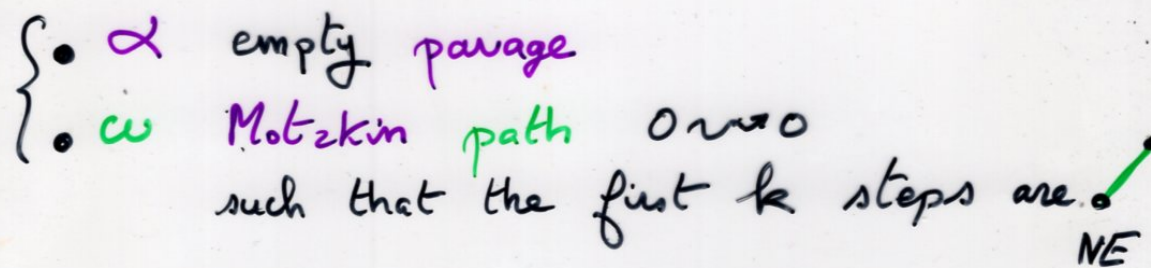 { • α empty pavage
• ω Motzkin path 0 ⇝ 0
such that the first k steps are
NE